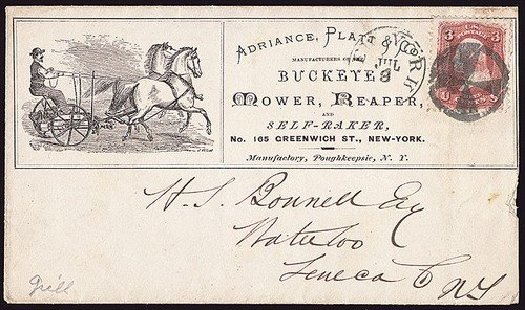 ADRIANCE, PLATT &
MANUFACTURERS OF THE
BUCKEYE
MOWER, REAPER,
AND
SELF-RAKER,
No. 165 GREENWICH ST., NEW-YORK.
Manufactory, Poughkeepsie, N. Y.
YORK
JUL
8
3 3
H. S. Bonnell Esq
Waterloo
Seneca Co
NY
Grill